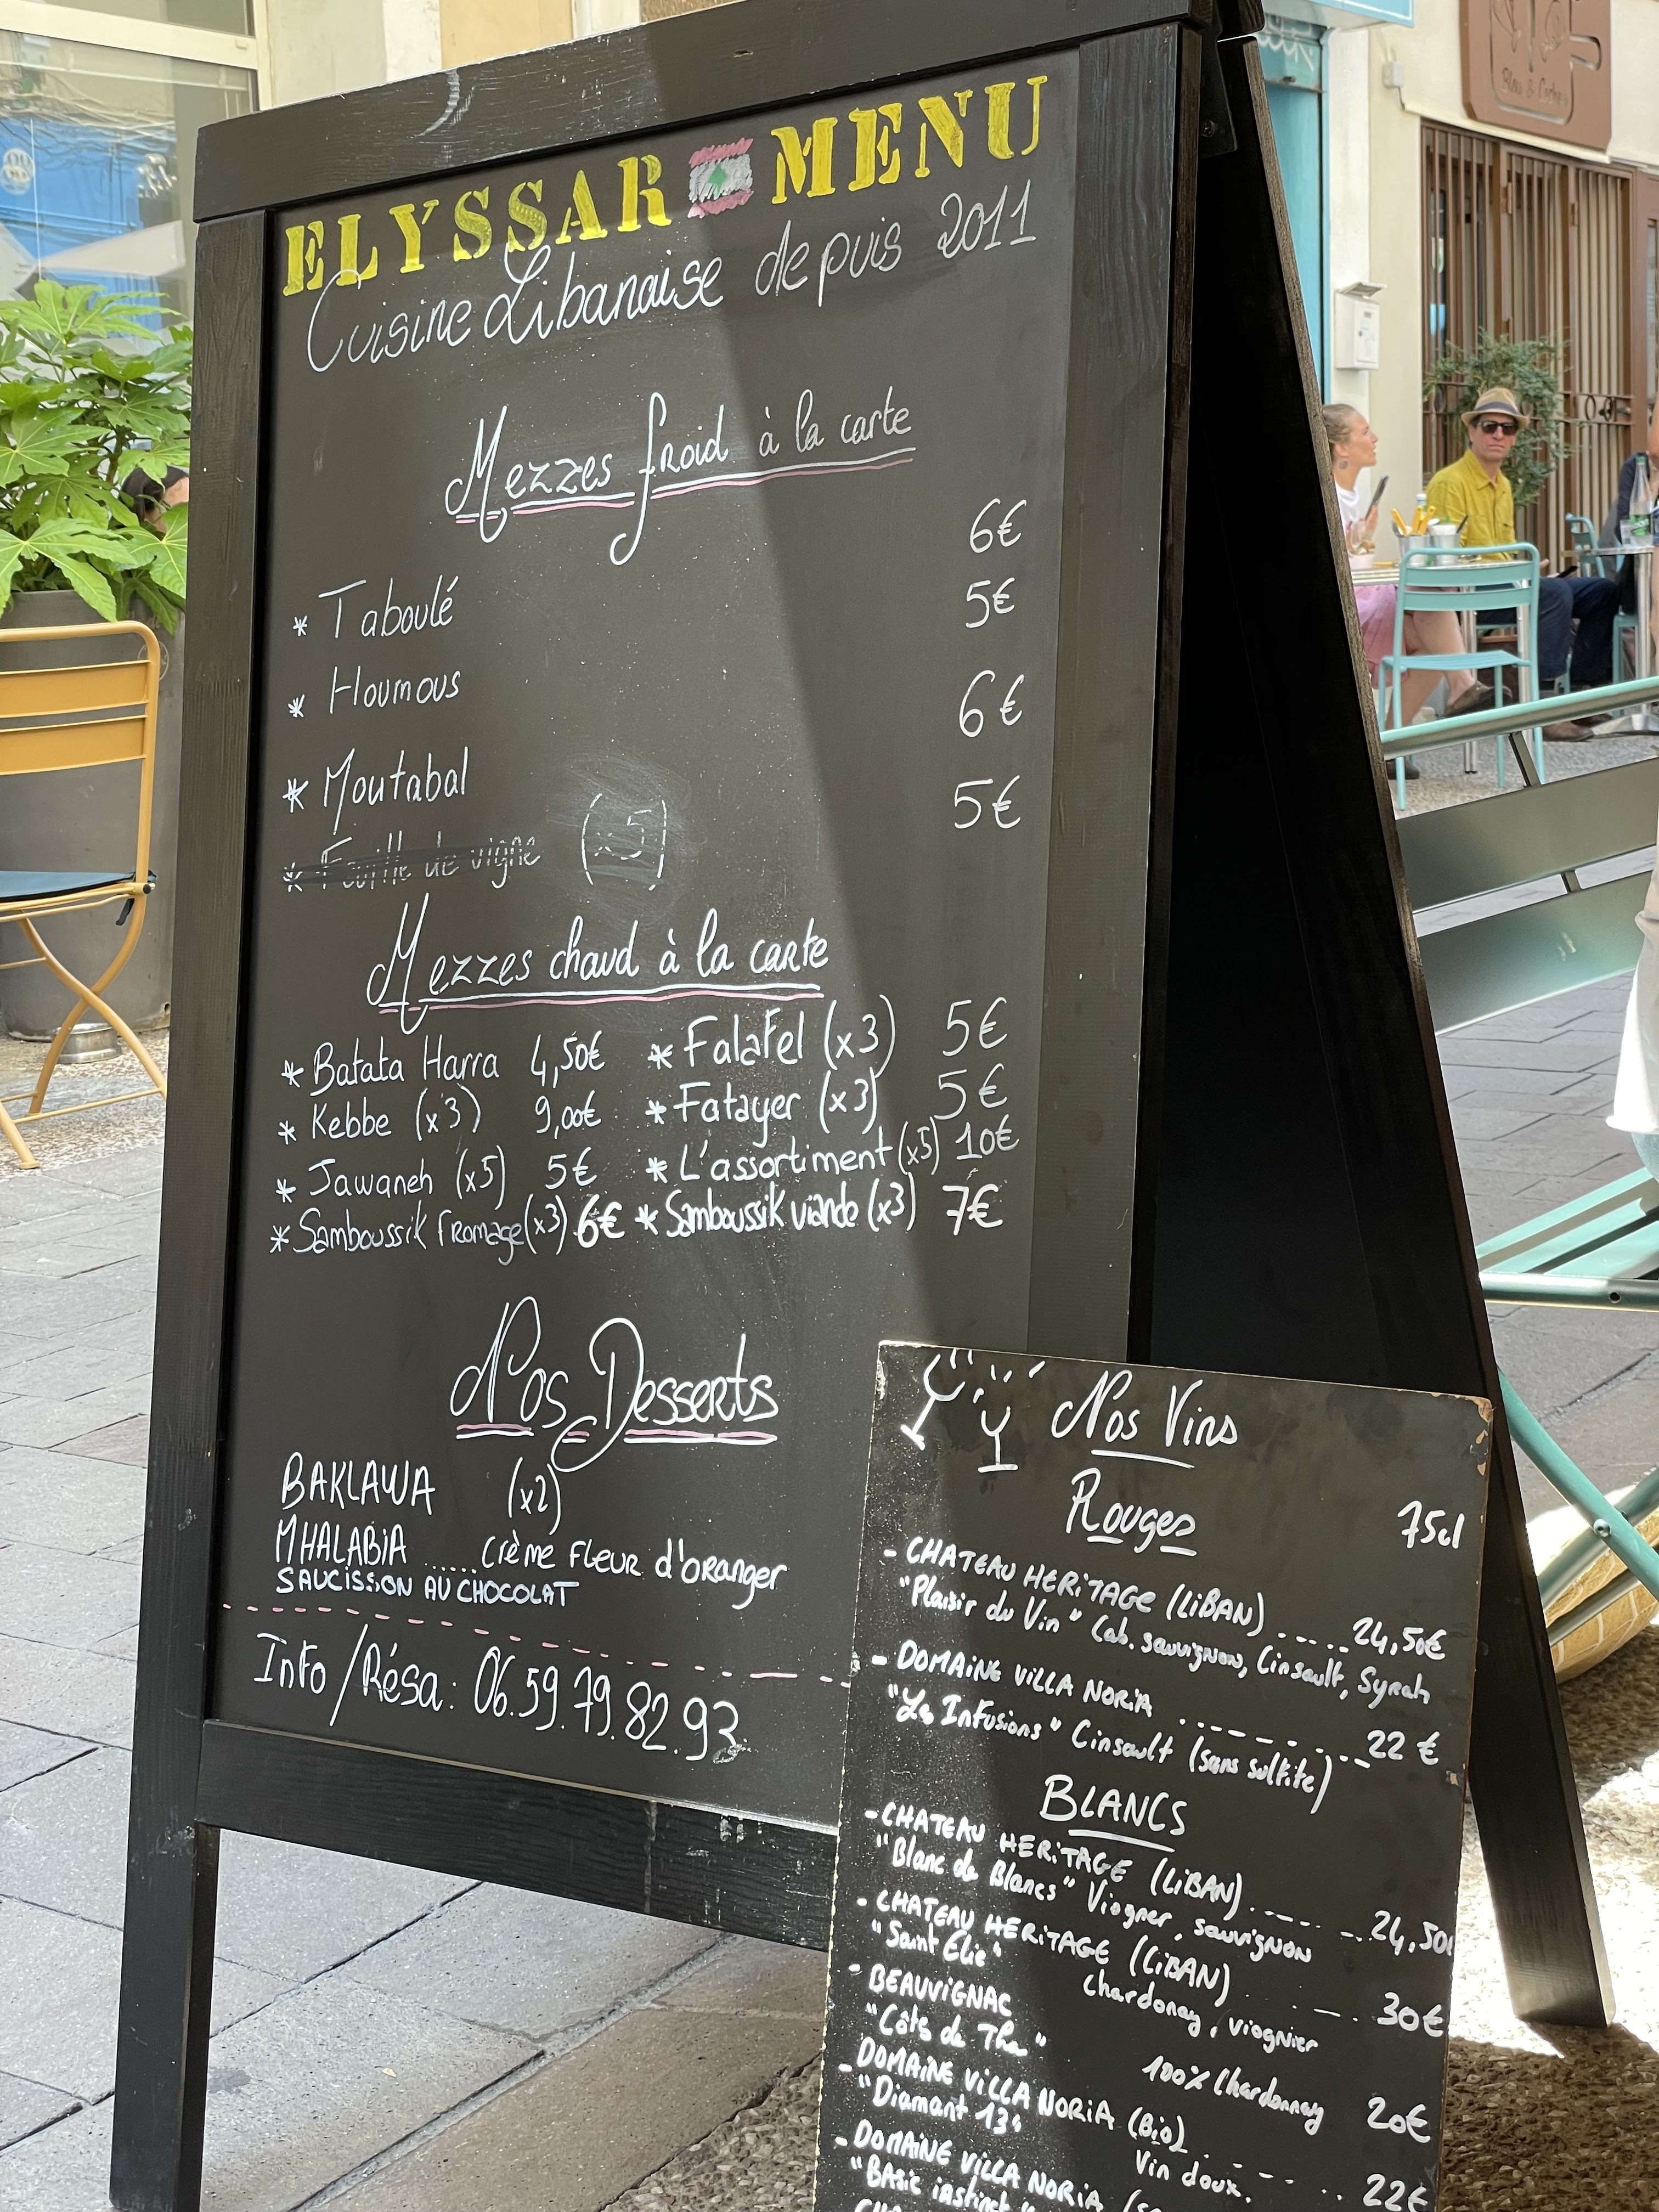 ELYSSAR MENU
Cuisine Libanaise depuis 2011
Mezzes froid à la carte
* Taboulé 6€
* Houmous 5€
* Moutabal 6€
* Feuille de vigne (x5) 5€
Mezzes chaud à la carte
* Batata Harra 4,50€ * Falafel (x3) 5€
* Kebbe (x3) 9,00€ * Fatayer (x3) 5€
* Jawaneh (x5) 5€ * L'assortiment (x5) 10€
* Samboussik fromage (x3) 6€ * Samboussik viande (x3) 7€
Nos Desserts
BAKLAWA (x2)
MHALABIA ..... crème FLEUR d'ORANGER
SAUCISSON AU CHOCOLAT
Info/Résa: 06.59.79.82.93
Nos Vins
Rouges 75cl
- CHATEAU HERITAGE (LIBAN) ..... 24,50€
"Plaisir du Vin" Cab. sauvignon, Cinsault, Syrah
- DOMAINE VILLA NORIA ........ 22€
"Les Infusions" Cinsault (sans sulfite)
BLANCS
- CHATEAU HERITAGE (LIBAN) ...... 24,50€
"Blanc de Blancs" Viogner, sauvignon
- CHATEAU HERITAGE (LIBAN) .... 30€
"Saint Elie" chardonay, viognier
- BEAUVIGNAC 20€
"Côts de Tha" 100% Chardonnay
- DOMAINE VILLA NORIA (Bio) ...... 22€
"Diamant 13" Vin doux.
- DOMAINE VILLA NORIA
"BASic instinct"